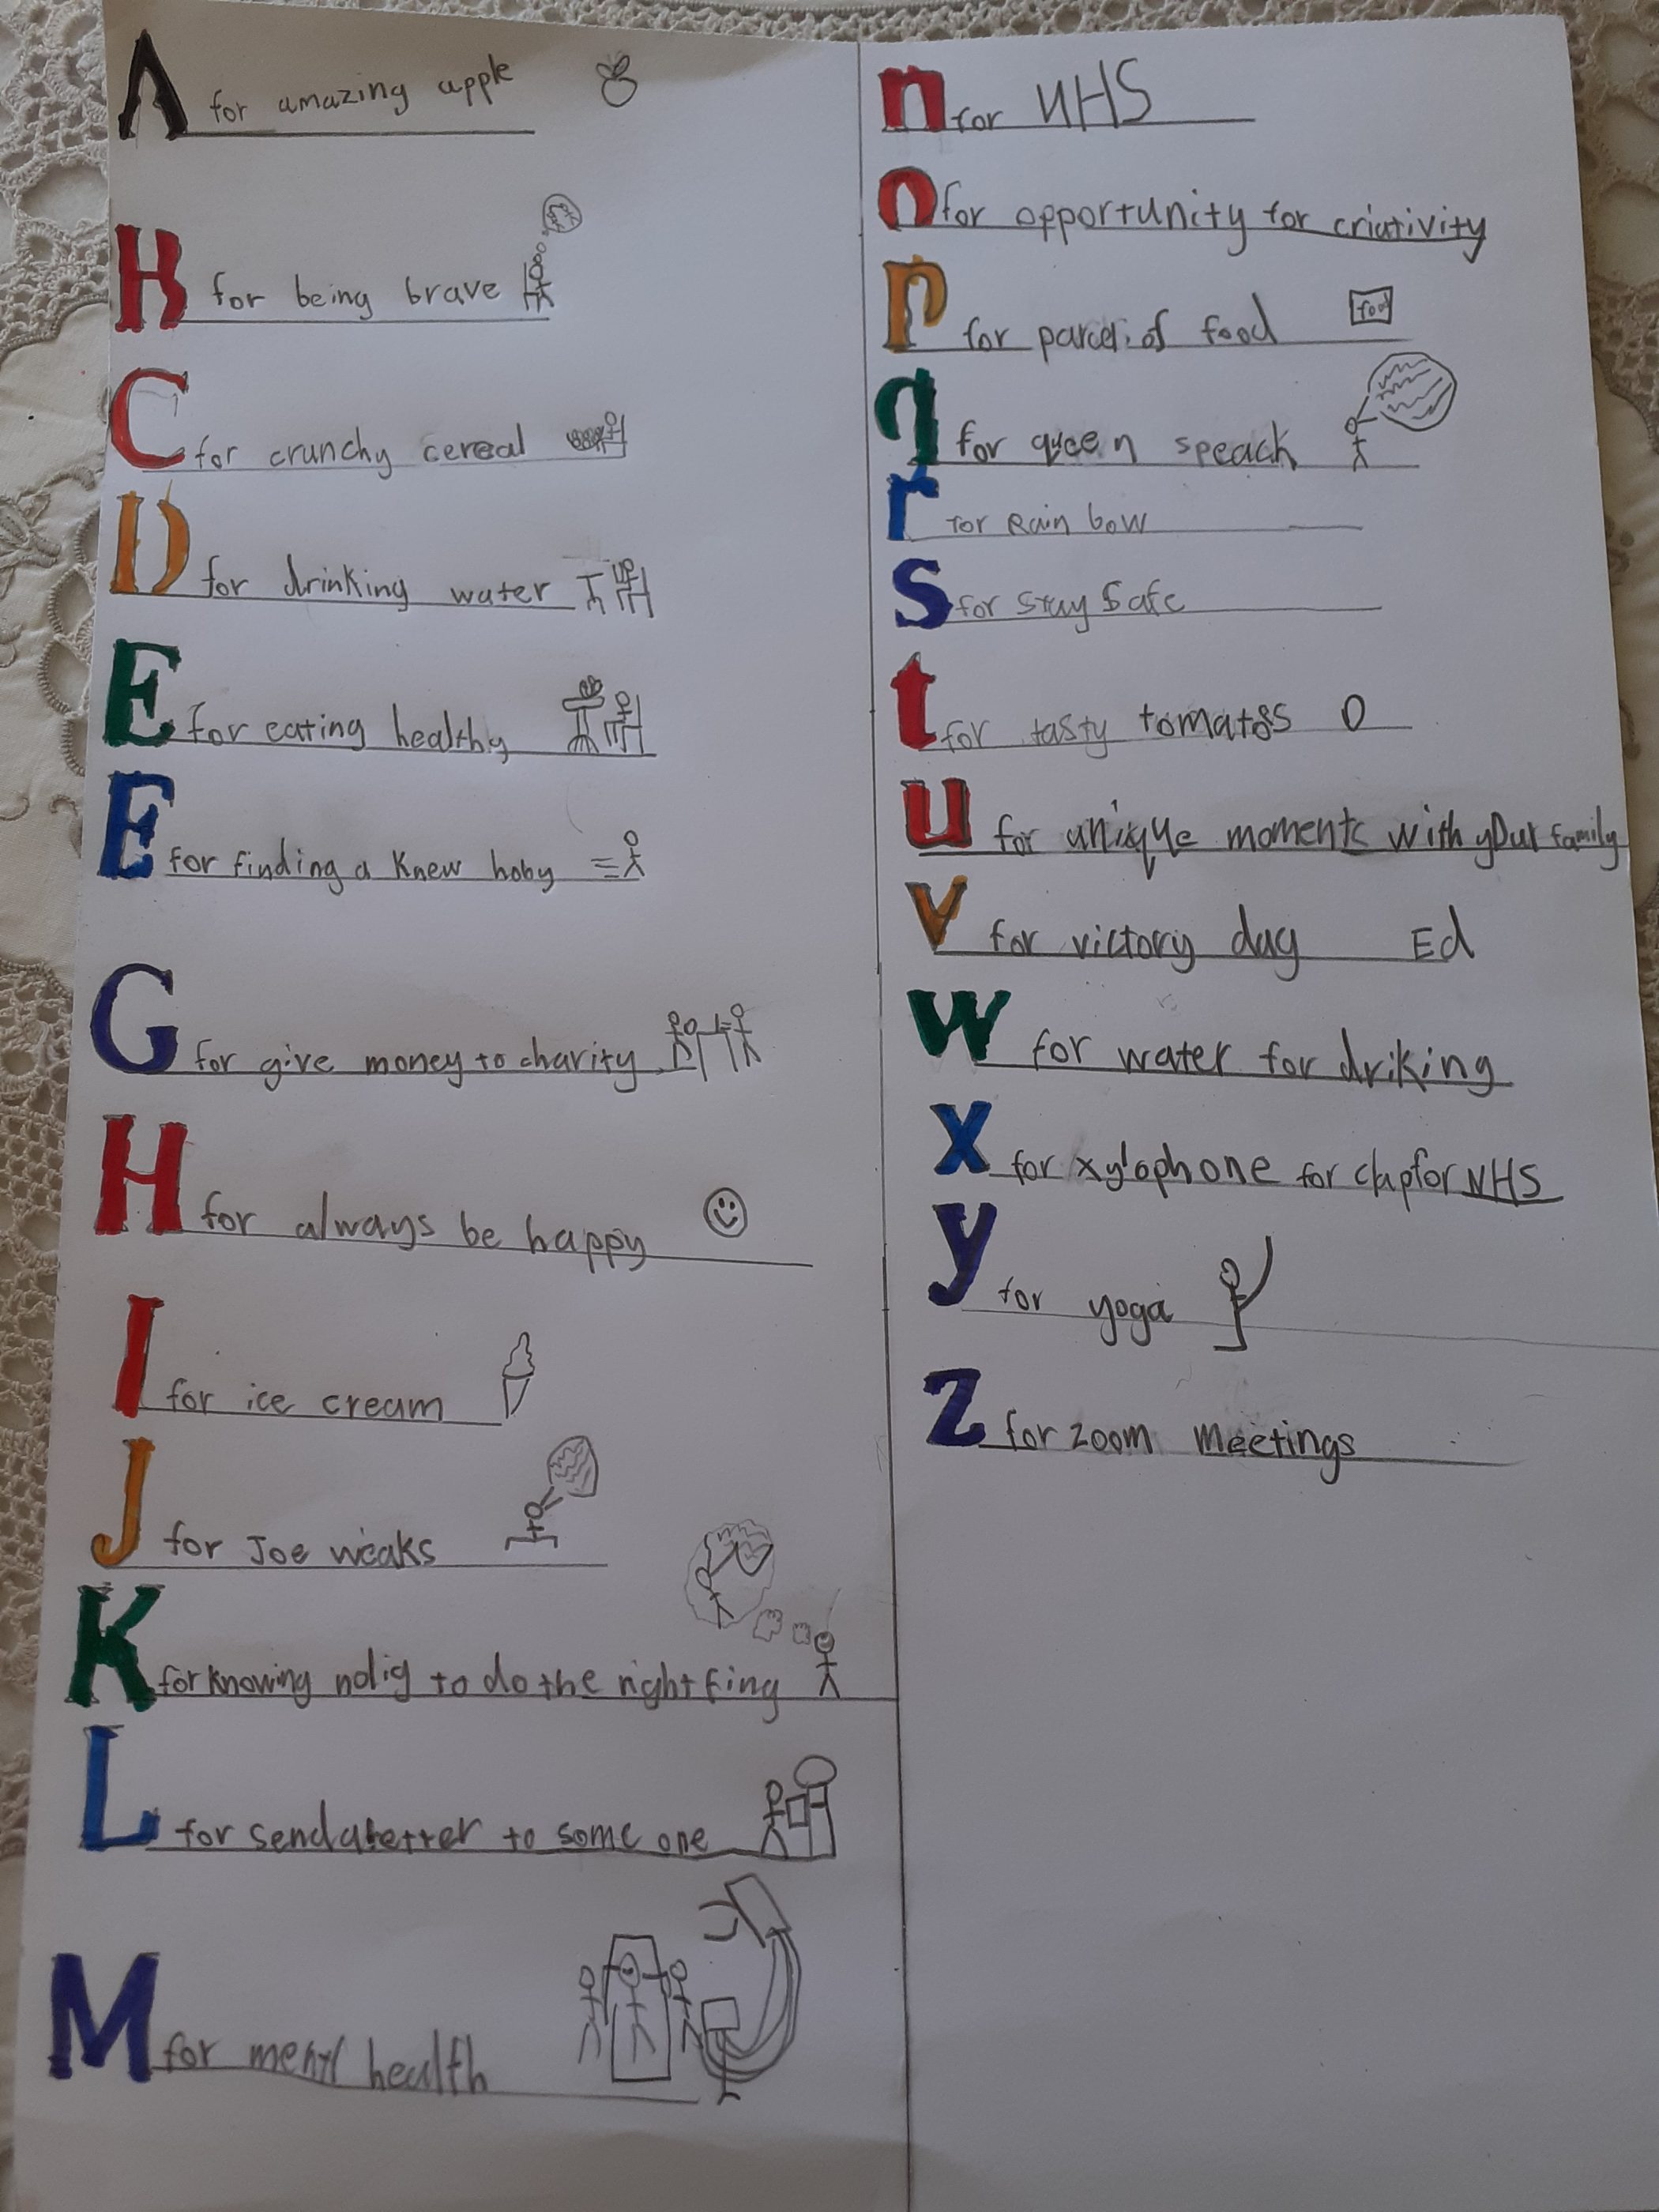 A for amazing apple
B for being brave
C for crunchy cereal
D for drinking water
E for eating healthy
E for finding a knew hoby
G for give money to charity
H for always be happy
I for ice cream
J for Joe weaks
K for knowing to do the right fing
L for send a letter to some one
M for mentl health
n for NHS
o for opportunity for criativity
P for parcel of food
food
q for queen speack
r for Rain bow
S for stay Safe
t for tasty tomatos
u for unique moments with your family
v for victory day Ed
w for water for driking
x for xylophone for clap for NHS
y for yoga
Z for zoom meetings